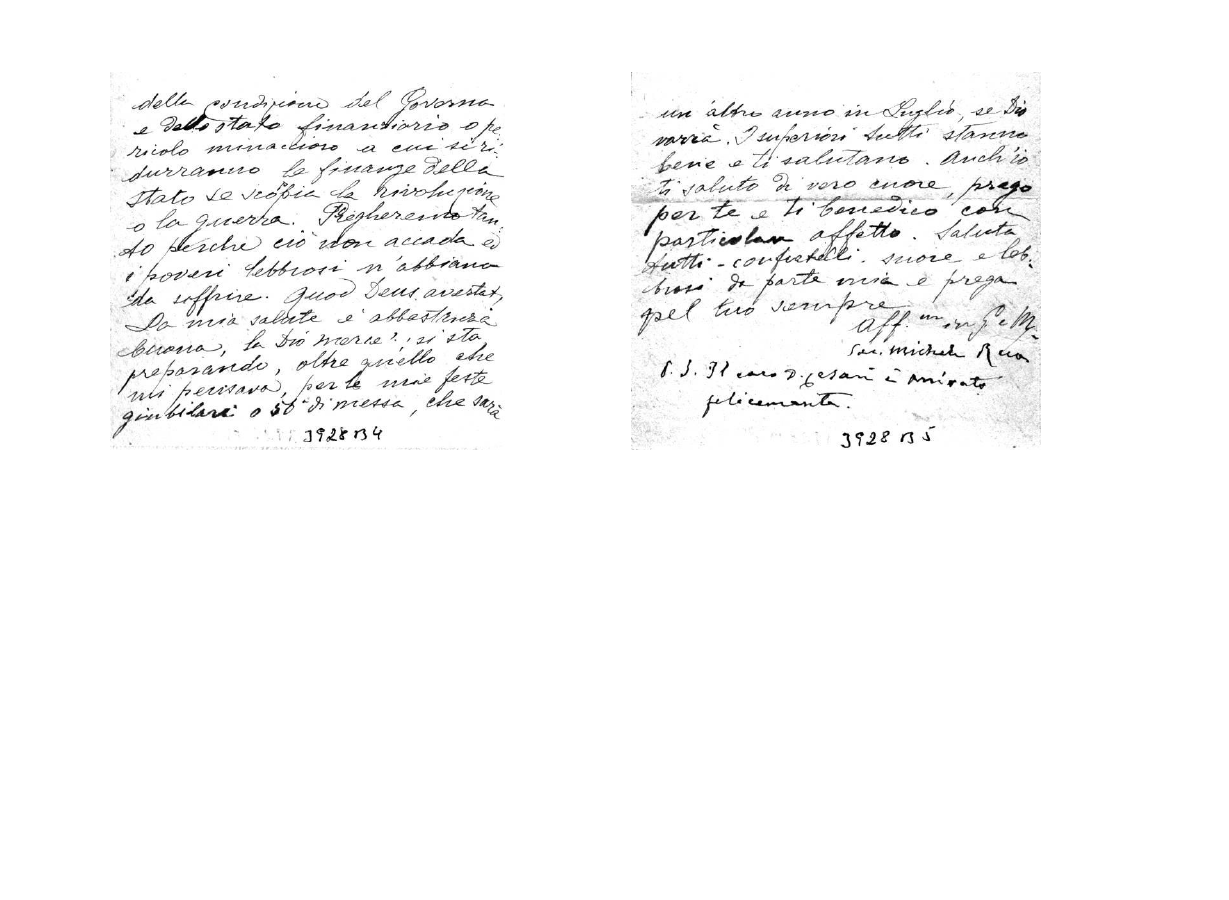 della condizione del Governo
e dello stato finanziario o pe-
ricolo minaccioso a cui si ri-
durranno le finanze dello
stato se scoppia la rivoluzione
o la guerra. Pregheremo tan-
to perchè ciò non accada ed
i poveri lebbrosi n'abbiano
da soffrire. Quod Deus avertat,
La mia salute è abbastanza
buona, la Dio mercè; si sta
preparando, oltre quello che
mi pensava, per le mie feste
giubilari o 50° di messa, che sarà
3928 B4
un altro anno in Luglio, se Dio
vorrà. I superiori tutti stanno
bene e ti salutano. Anch'io
ti saluto di vero cuore, prego
per te e ti benedico con
particolare affetto. Saluta
tutti - confratelli. suore e leb-
brosi da parte mia e prega
pel tuo sempre
Aff.mo in G e M.
Sac. Michele Rua
P. S. Il caro D. Cesari è arrivato
felicemente.
3928 B5